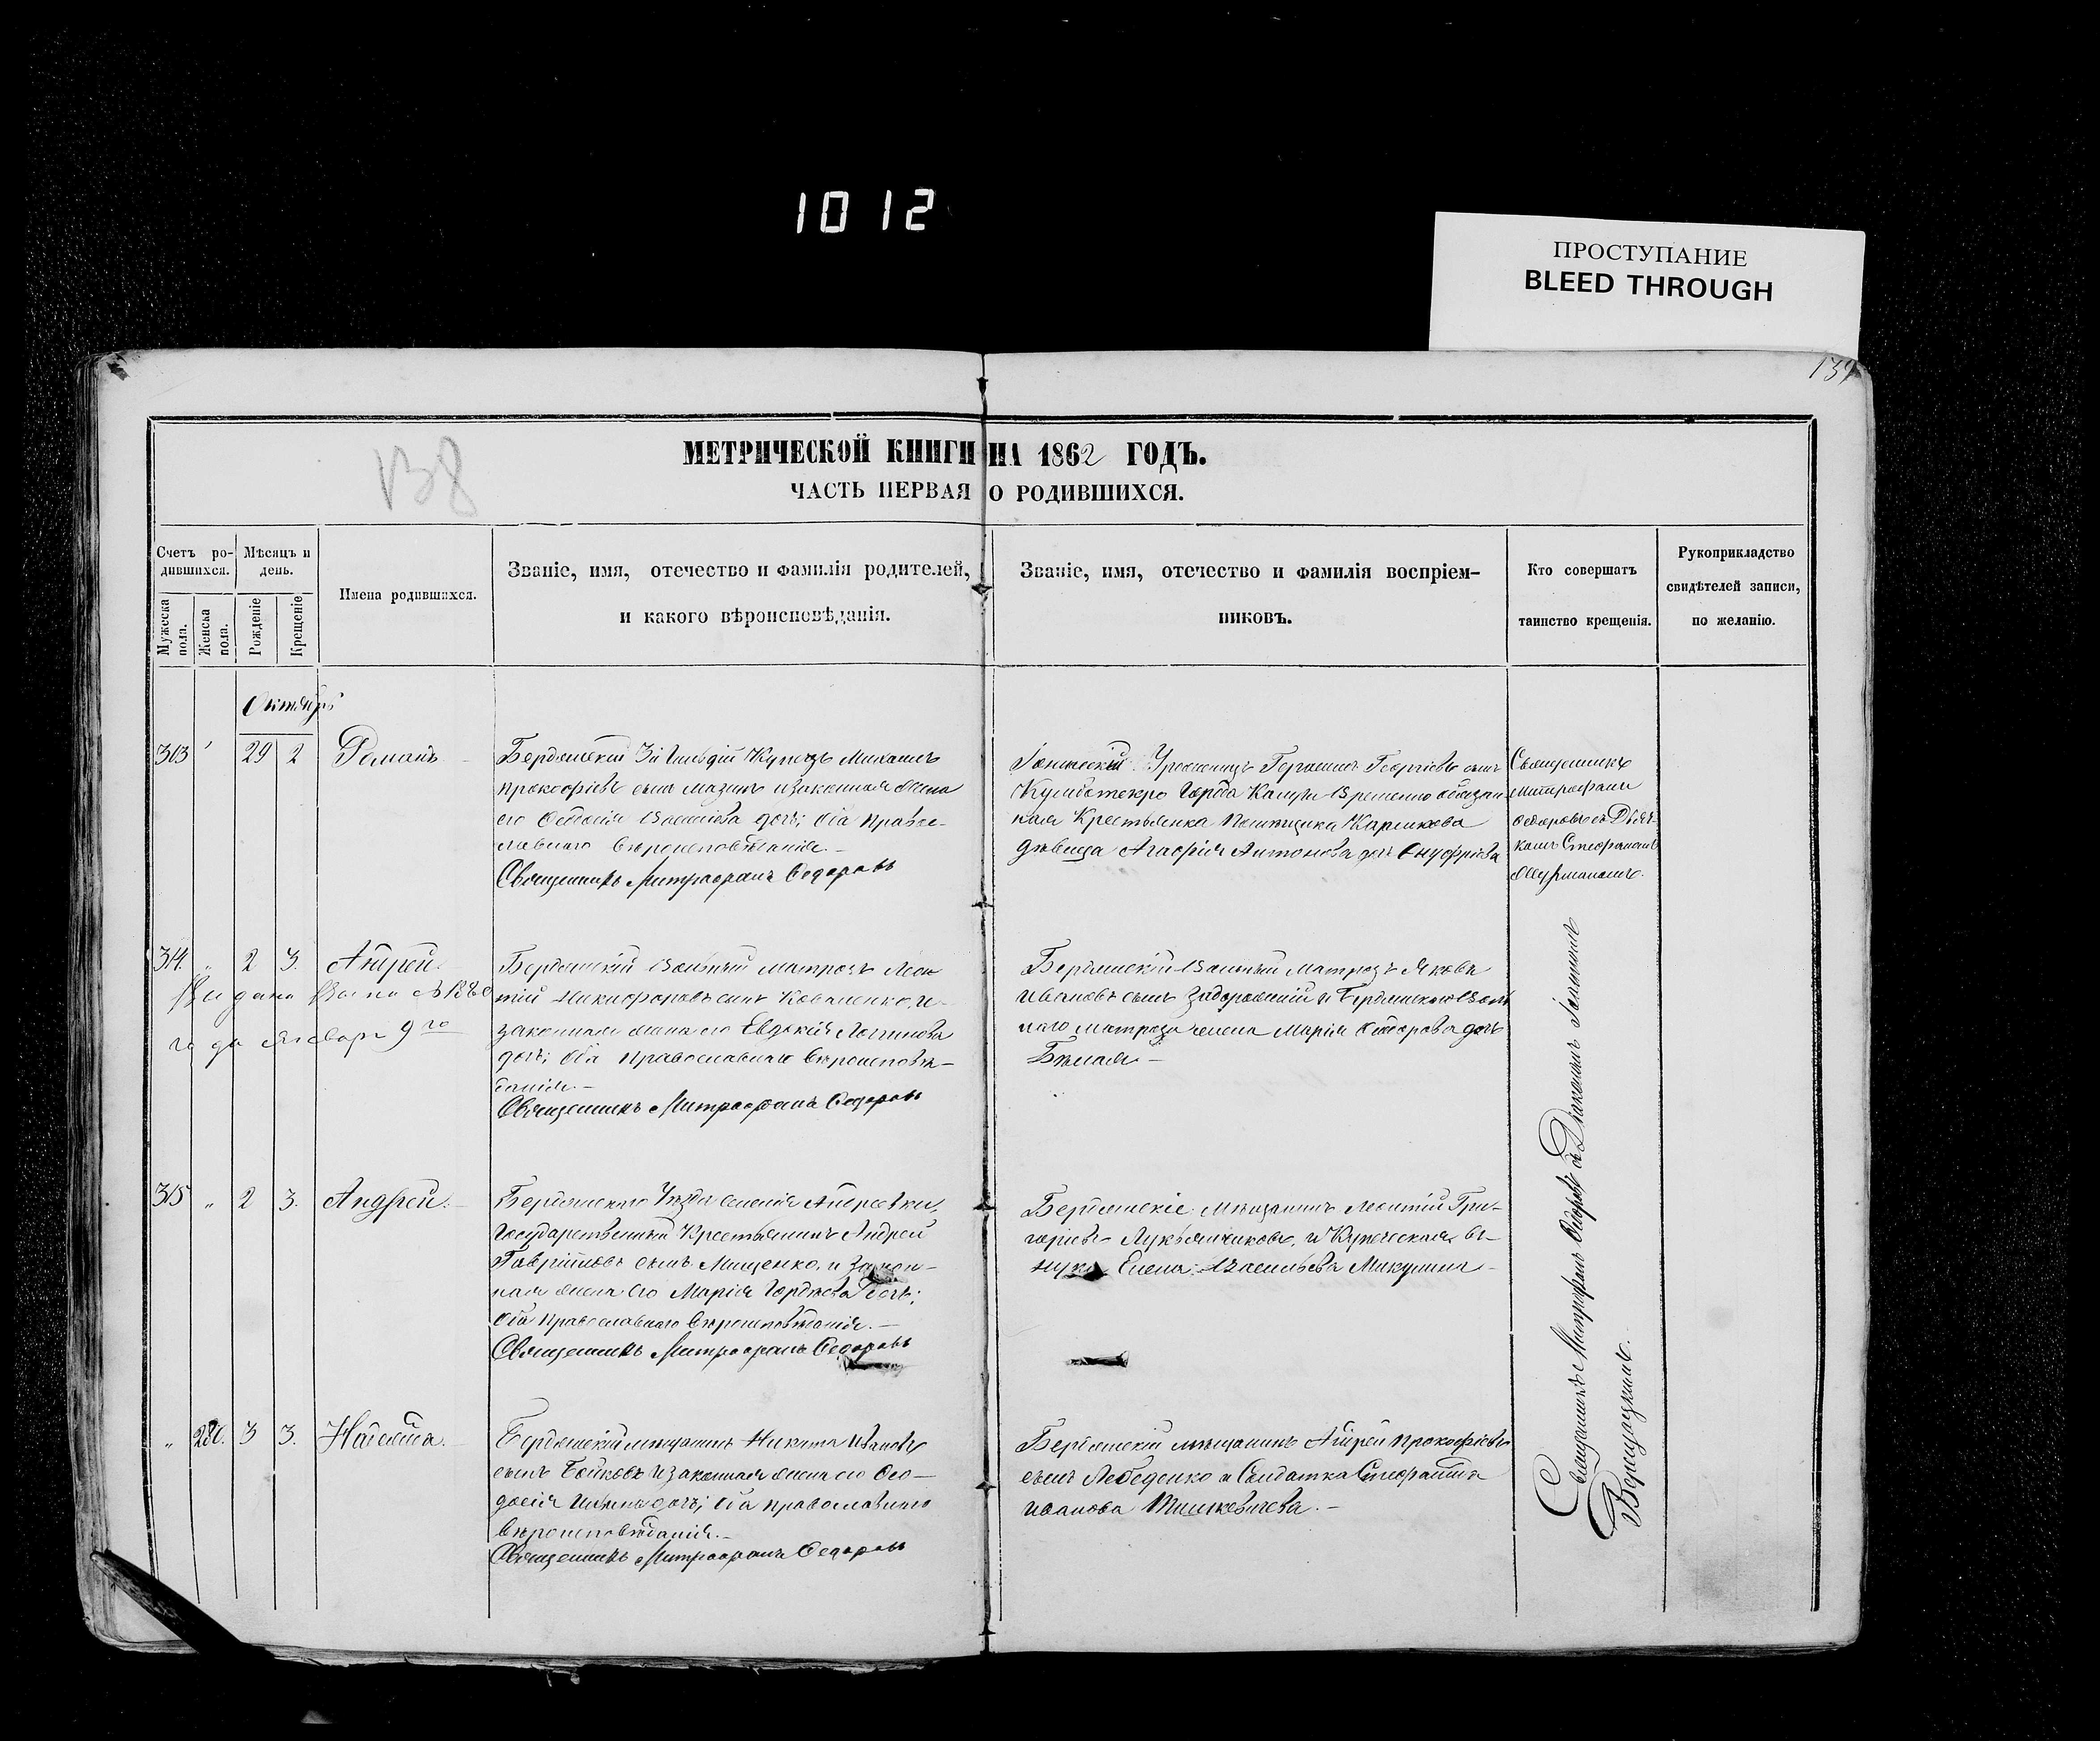 1012
ПРОСТУПАНИЕ
BLEED THROUGH
139
138
МЕТРИЧЕСКОЙ КНИГИ НА 1862 ГОДЪ.
ЧАСТЬ ПЕРВАЯ О РОДИВШИХСЯ.
Счетъ ро-
дившихся.
Мужеска пола.
Женска пола.
Мѣсяцъ и
день.
Рожденіе
Крещеніе
Имена родившихся.
Званіе, имя, отечество и фамилія родителей,
и какого вѣроисповѣданія.
Званіе, имя, отечество и фамилія воспріем-
никовъ.
Кто совершатъ
таинство крещенія.
Рукоприкладство
свидѣтелей записи,
по желанію.
Октябрь
313 29 2 Романъ
Бердянскій 3й Гильдіи Купецъ Михаилъ
Прокофіевъ сынъ Мазинъ и законная жена
его Евдокія дочь; оба Право-
славнаго вѣроисповѣданія.
Священникъ Митрофанъ Федоровъ
Уроженецъ Герасимъ Георгіевъ сынъ
города Временно обязан
ная Крестьянка Помѣщика Карпикова
дѣвица Агафія Антонова дочь Онуфріева
Священникъ
Митрофанъ
Федоровъ съ Дьяч-
комъ Стефаномъ
314. " 2 3. Андрей.
Выдана
года Января 9го
Бердянскій Вольный матрозъ Леон
тій Никифоровъ сынъ Коваленко, и
законная жена его Евдокія Логинова
дочь; оба православнаго вѣроисповѣ-
данія.
Священникъ Митрофанъ Федоровъ
Бердянскій Вольный Матрозъ Яковъ
Ивановъ сынъ Задорожній и Бердянскаго Воль
наго матроза жена Марія Федорова дочь
Бѣлая
315 " 2 3. Андрей.
Бердянскаго Уѣзда селенія Андреевки,
Государственный Крестьянинъ Андрей
Гавріиловъ сынъ Мищенко, и закон-
ная жена его Марія Гордѣева дочь;
оба православнаго вѣроисповѣданія.
Священникъ Митрофанъ Федоровъ
Бердянскіе: мѣщанинъ Леонтій Гри-
горіевъ Лукьянчиковъ, и Купеческая в-
нука Елена Васильева Микулина
Священникъ Митрофанъ Федоровъ съ Діакономъ Іоанномъ
Верещацкимъ.
" 280. 3 3. Наталія.
Бердянскій мѣщанинъ Никита Ивановъ
сынъ Бойковъ и законная жена его Фео-
досія Ильина дочь; оба православнаго
вѣроисповѣданія.
Священникъ Митрофанъ Федоровъ
Бердянскій мѣщанинъ Андрей Прокофіевъ
сынъ Лебеденко и Солдатка Стефанида
Иванова